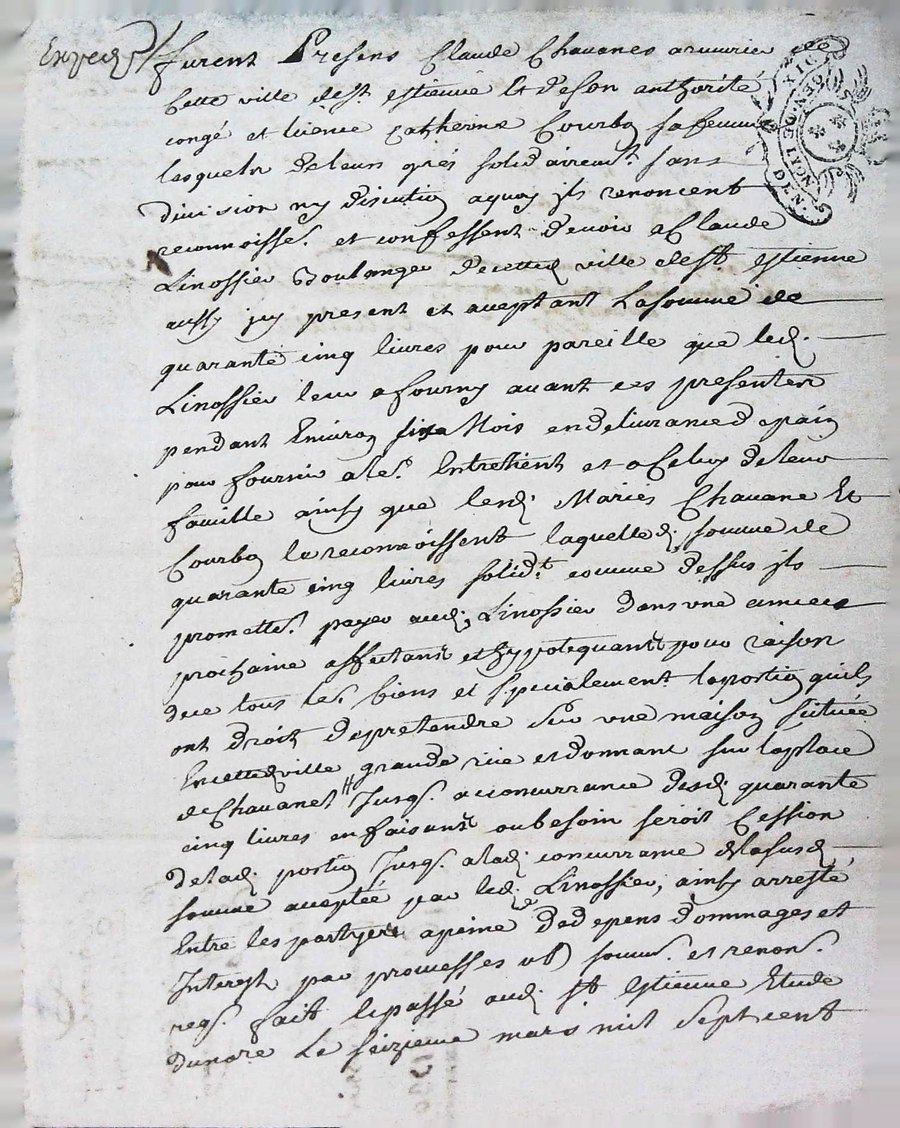 Exped
furent Presens Claude Chauanes armurier de
Cette ville de st. estienne et de son authorité
congé et licence Catherine Courbo sa femme
lesquels de leurs grés solidairemt. sans
diuision ny discution aquoy ils renoncent
reconnoisse. et confessent deuoir a Claude
Linossier Boulanger de cette ville de st. estienne
aussy icy present et aceptant la somme de
quarante cinq livres pour pareille que led.
Linossier leur a fourny auant ces presentes
pendant enuiron six Mois en deliurance de pain
pour fournir a le. Entretient et a Celuy de leur
famille ainsy que lesd. Mariés Chauane Et
Courbo le reconnoissent laquelle d. somme de
quarante cinq livres solidt. comme dessus ils
promette. payer aud. Linossier dans une année
prochaine affectants et hypotequants pour raison
de ce tous les. biens et specialement la portion quils
ont droit de pretendre sur une maison scituée
En cette d. ville grande rüe et donnant sur la place
de Chauanel Jusq. a concurrance desd. quarante
cinq livres en faisant ou besoin seroit Cession
de lad. portion Jusq. a lad. concurrance de la susd.
somme aceptée par led. Linossier, ainsy arresté
Entre les partyes a peine de depens dommages et
Interests par promesses obl soum. et renon.
req. fait et passé aud. St Estienne Etude
du nore Le seizieme mars mil sept cent
DIX
GEN. DE LION
DE. N